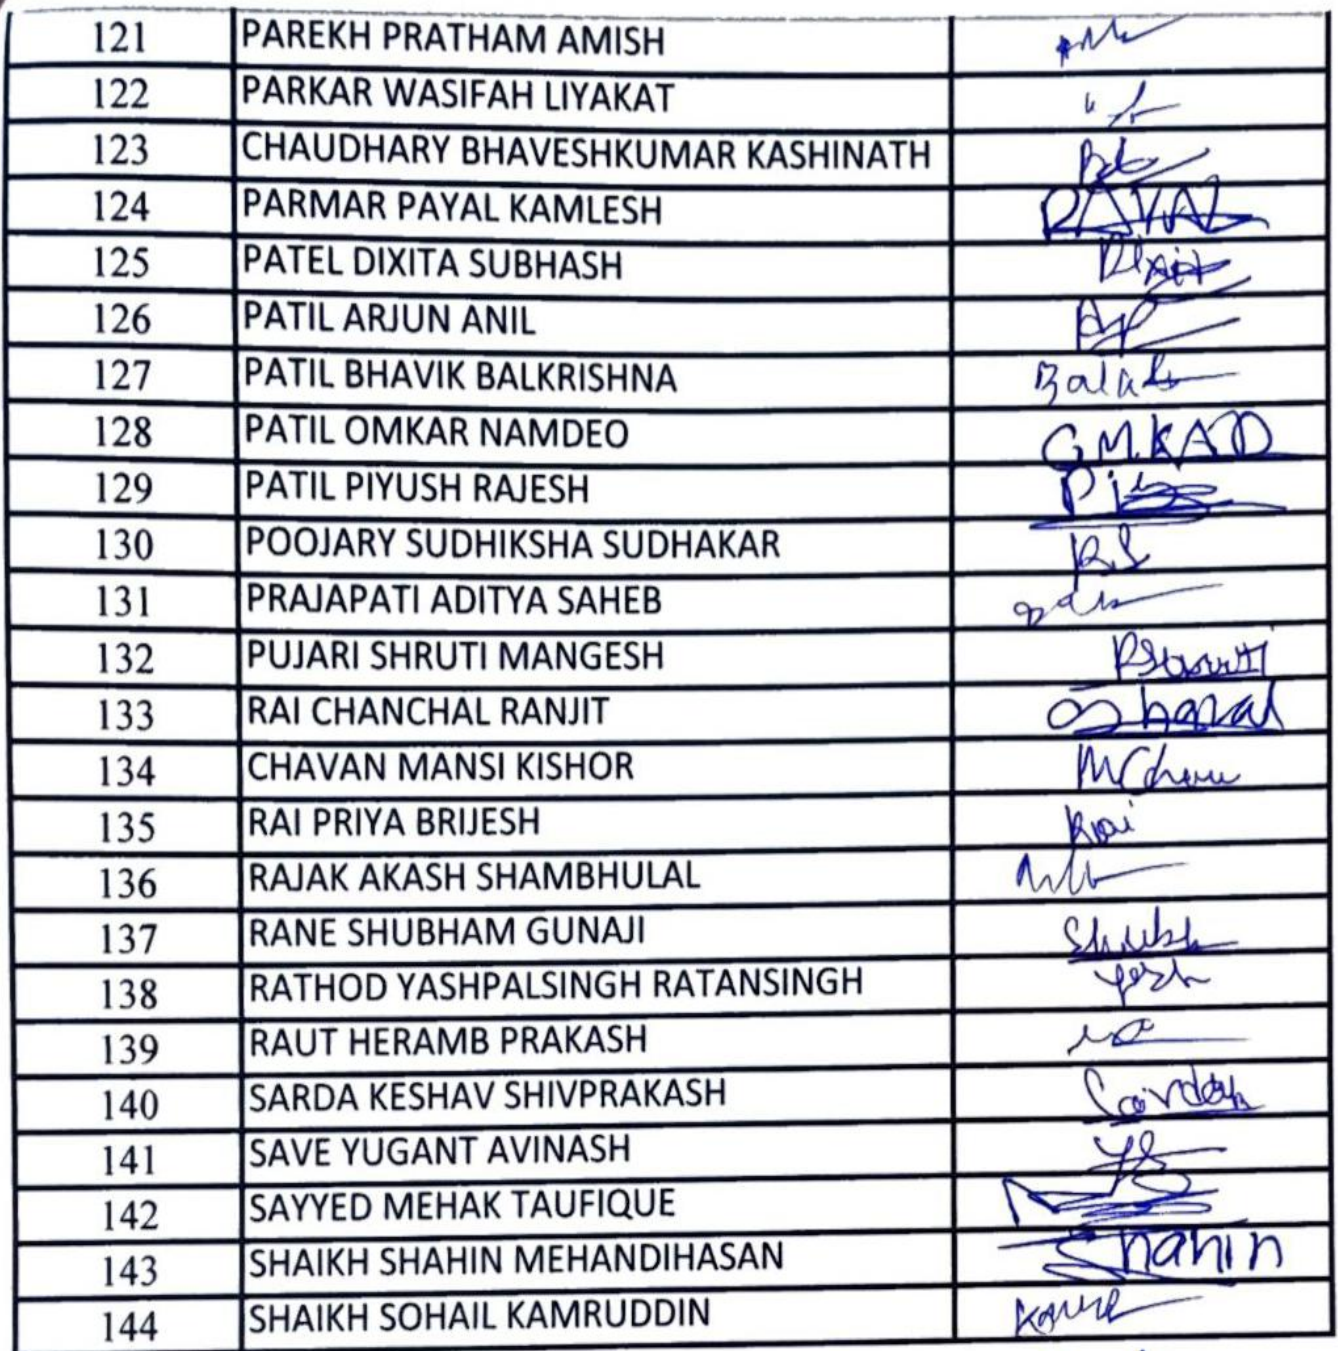 121 PAREKH PRATHAM AMISH
122 PARKAR WASIFAH LIYAKAT
123 CHAUDHARY BHAVESHKUMAR KASHINATH
124 PARMAR PAYAL KAMLESH PAYAL
125 PATEL DIXITA SUBHASH
126 PATIL ARJUN ANIL
127 PATIL BHAVIK BALKRISHNA
128 PATIL OMKAR NAMDEO
129 PATIL PIYUSH RAJESH
130 POOJARY SUDHIKSHA SUDHAKAR
131 PRAJAPATI ADITYA SAHEB
132 PUJARI SHRUTI MANGESH
133 RAI CHANCHAL RANJIT
134 CHAVAN MANSI KISHOR
135 RAI PRIYA BRIJESH Rai
136 RAJAK AKASH SHAMBHULAL
137 RANE SHUBHAM GUNAJI Shubh
138 RATHOD YASHPALSINGH RATANSINGH
139 RAUT HERAMB PRAKASH
140 SARDA KESHAV SHIVPRAKASH
141 SAVE YUGANT AVINASH YS
142 SAYYED MEHAK TAUFIQUE
143 SHAIKH SHAHIN MEHANDIHASAN Shahin
144 SHAIKH SOHAIL KAMRUDDIN